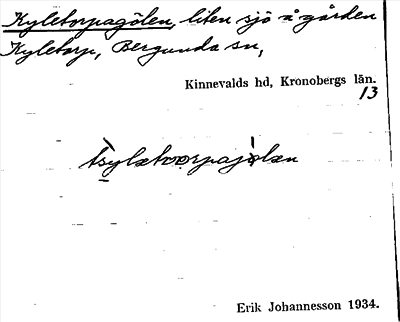 Kyletorpagölen, liten sjö å gården
Kyletorp, Bergunda sn,
Kinnevalds hd, Kronobergs län.
13
Erik Johannesson 1934.